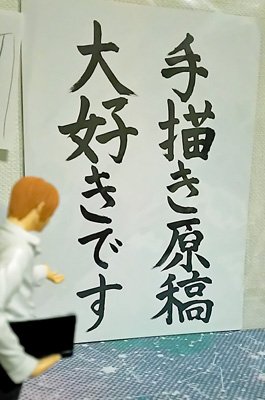 手描き原稿
大好きです